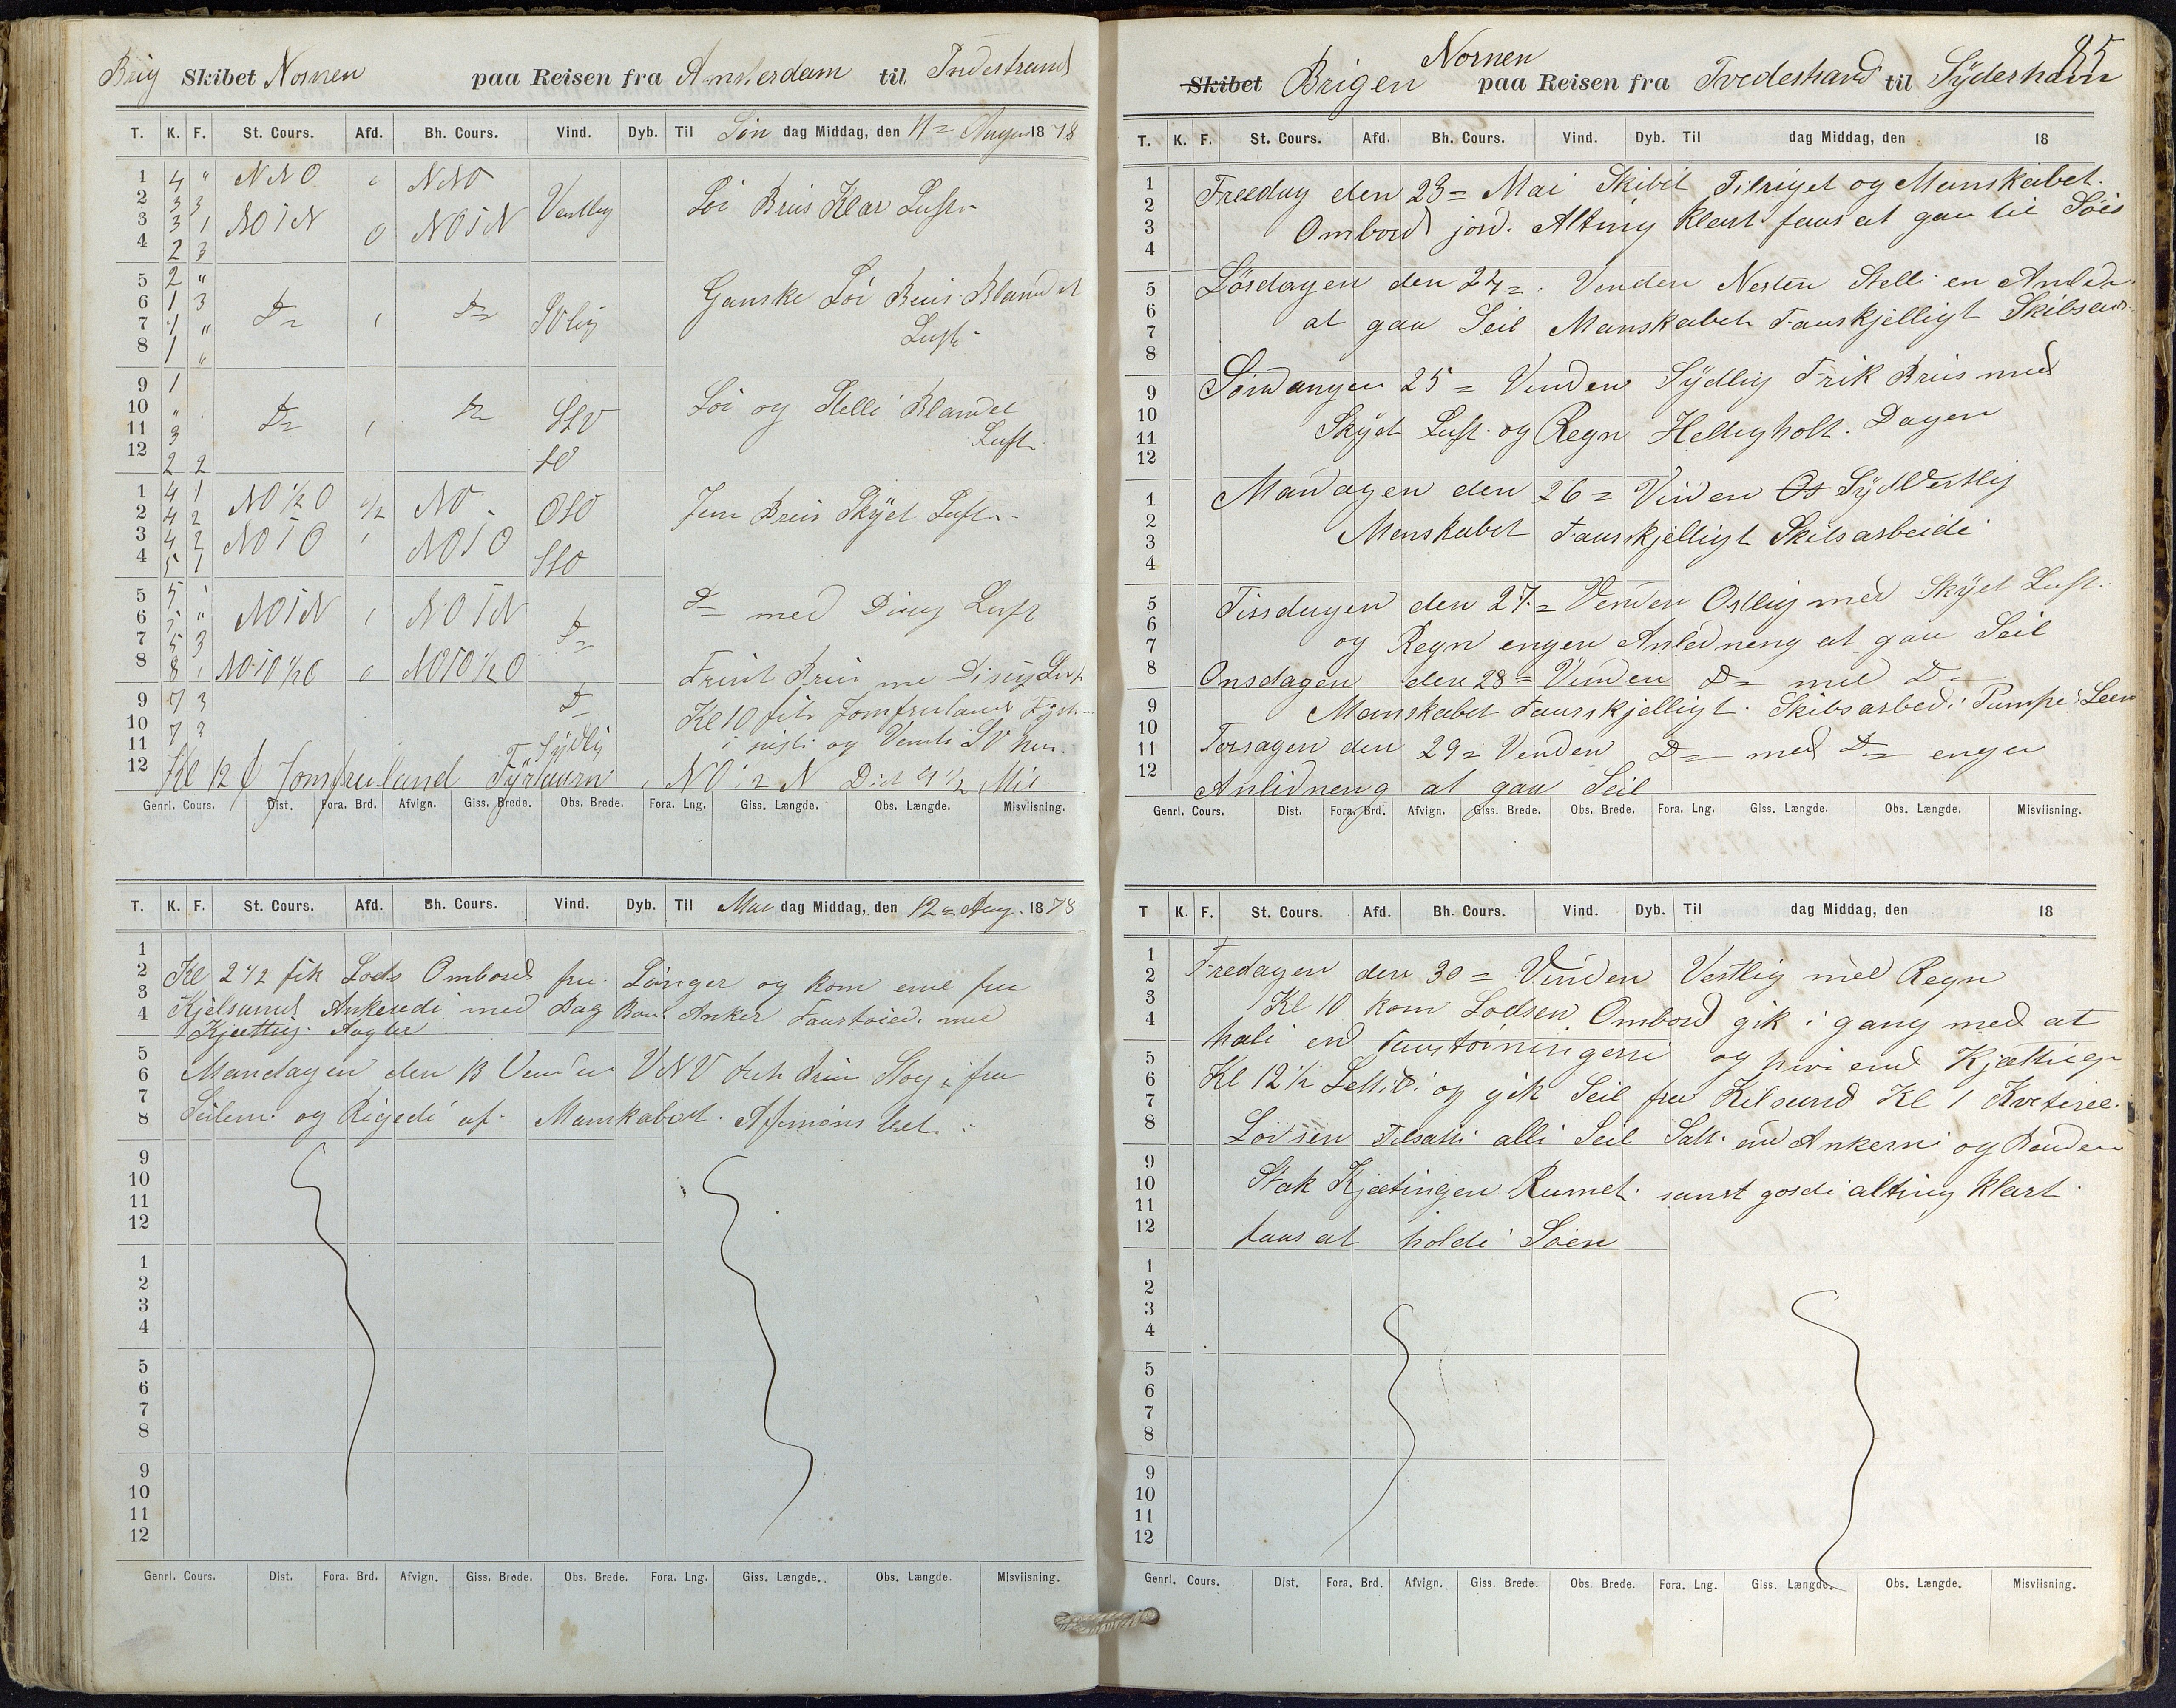 Brig Skibet Nornen paa Reisen fra Amsterdam til Tvedestrand
T. K. F. St. Cours. Afd. Bh. Cours. Vind. Dyb. Til Søn dag Middag, den 11= August 1878
1 4 " NNO " NNO
2 3 3
3 3 1 NOiN 0 NOiN Vestlig Löi Bris Klar Luft
4 2 3
5 2 "
6 1 3 Do Do SVlig Ganske Löi Bris Blandet
7 1 "
8 1 " Luft
9 1
10 " Do Do SSV Löi og Stelle Blandet
11 3 Luft
12 2 2 SO
1 4 1 NO½O ½ NO OSO Jevn Bris Skyet Luft
2 4 2
3 4 2 NOiO NOiO SSO
4 5 1
5 5
6 5 " NOiN NOiN Do Do med Disig Luft
7 5 3
8 8 NOiO½O NOiO½O Frisk Bris me Disig Luft
9 7 3 Do Kl 10 fik Jomfruland Fyr
10 7 3 i sigte og
11 Sydlig
12 Kl 12 Jomfruland Fyrtaarn NO i N Dist 4½ Mil
Genrl. Cours. Dist. Fora. Brd. Afvign. Giss. Brede. Obs. Brede. Fora. Lng. Giss. Længde. Obs. Længde. Misviisning.
T. K. F. St. Cours. Afd. Bh. Cours. Vind. Dyb. Til Man dag Middag, den 12= Aug. 1878
1
2 Kl 2½ fik Lods Ombord fra Lönger og kom end fra
3 Kjelsund Ankerede med Dag Bou Anker Faartöied med
4 Kjætting Agter
5
6 Mandagen den 13 Venden VNV
7
8 Seilene og Rigede af Manskabet
9
10
11
12
1
2
3
4
5
6
7
8
9
10
11
12
Genrl. Cours. Dist. Fora. Brd. Afvign. Giss. Brede. Obs. Brede. Fora. Lng. Giss. Længde. Obs. Længde. Misviisning.
85
Skibet Brigen Nornen paa Reisen fra Tvedestrand til Syderhavn
T. K. F. St. Cours. Afd. Bh. Cours. Vind. Dyb. Til dag Middag, den 18
1 Freedag den 23= Mai Skibet Tilriget og Manskabet
2
3 Ombord jord. Alting klart faar at gaa til Söis
4
5 Lörsdagen den 24= Venden Nesten Stelle en Anledn
6
7 at gaa Seil Manskabet Faurskjelligt Skibsarb
8
9 Söndangen 25= Venden Sydlig Frik Bris med
10
11 Skyet Luft og Regn Helligholt Dagen
12
1 Mandagen den 26= Vinden Os SydVestlig
2
3 Manskabet Faurskjelligt Skibsarbeide
4
5 Tirsdagen den 27= Venden Ostlig med Skyet Luft
6
7 og Regn engen Anledneng at gaa Seil
8 Onsdagen den 28= Venden Do med Do
9 Manskabet Faurskjelligt Skibsarbed Pumpe Leen
10
11 Torsagen den 29= Venden Do med Do engen
12 Anledneng at gaa Seil
Genrl. Cours. Dist. Fora. Brd. Afvign. Giss. Brede. Obs. Brede. Fora. Lng. Giss. Længde. Obs. Længde. Misviisning.
T K. F. St. Cours. Afd. Bh. Cours. Vind. Dyb. Til dag Middag, den 18
1
2 Fredagen den 30= Vinden Vestlig med Regn
3 Kl 10 kom Lodsen Ombord gik i gang med at
4 hale end Faartöiningene og hive end Kjættingen
5
6 Kl 12½ Lettede og gik Seil fra Kilsund Kl 1
7
8 Lodsen Tilsatte alle Seil Satte end Ankerne og Banden
9
10 Stak Kjætingen Rumet samt gorde alting klart
11
12 faar at holde Söen
1
2
3
4
5
6
7
8
9
10
11
12
Genrl. Cours. Dist. Fora. Brd. Afvign. Giss. Brede. Obs. Brede. Fora. Lng. Giss. Længde. Obs. Længde. Misviisning.